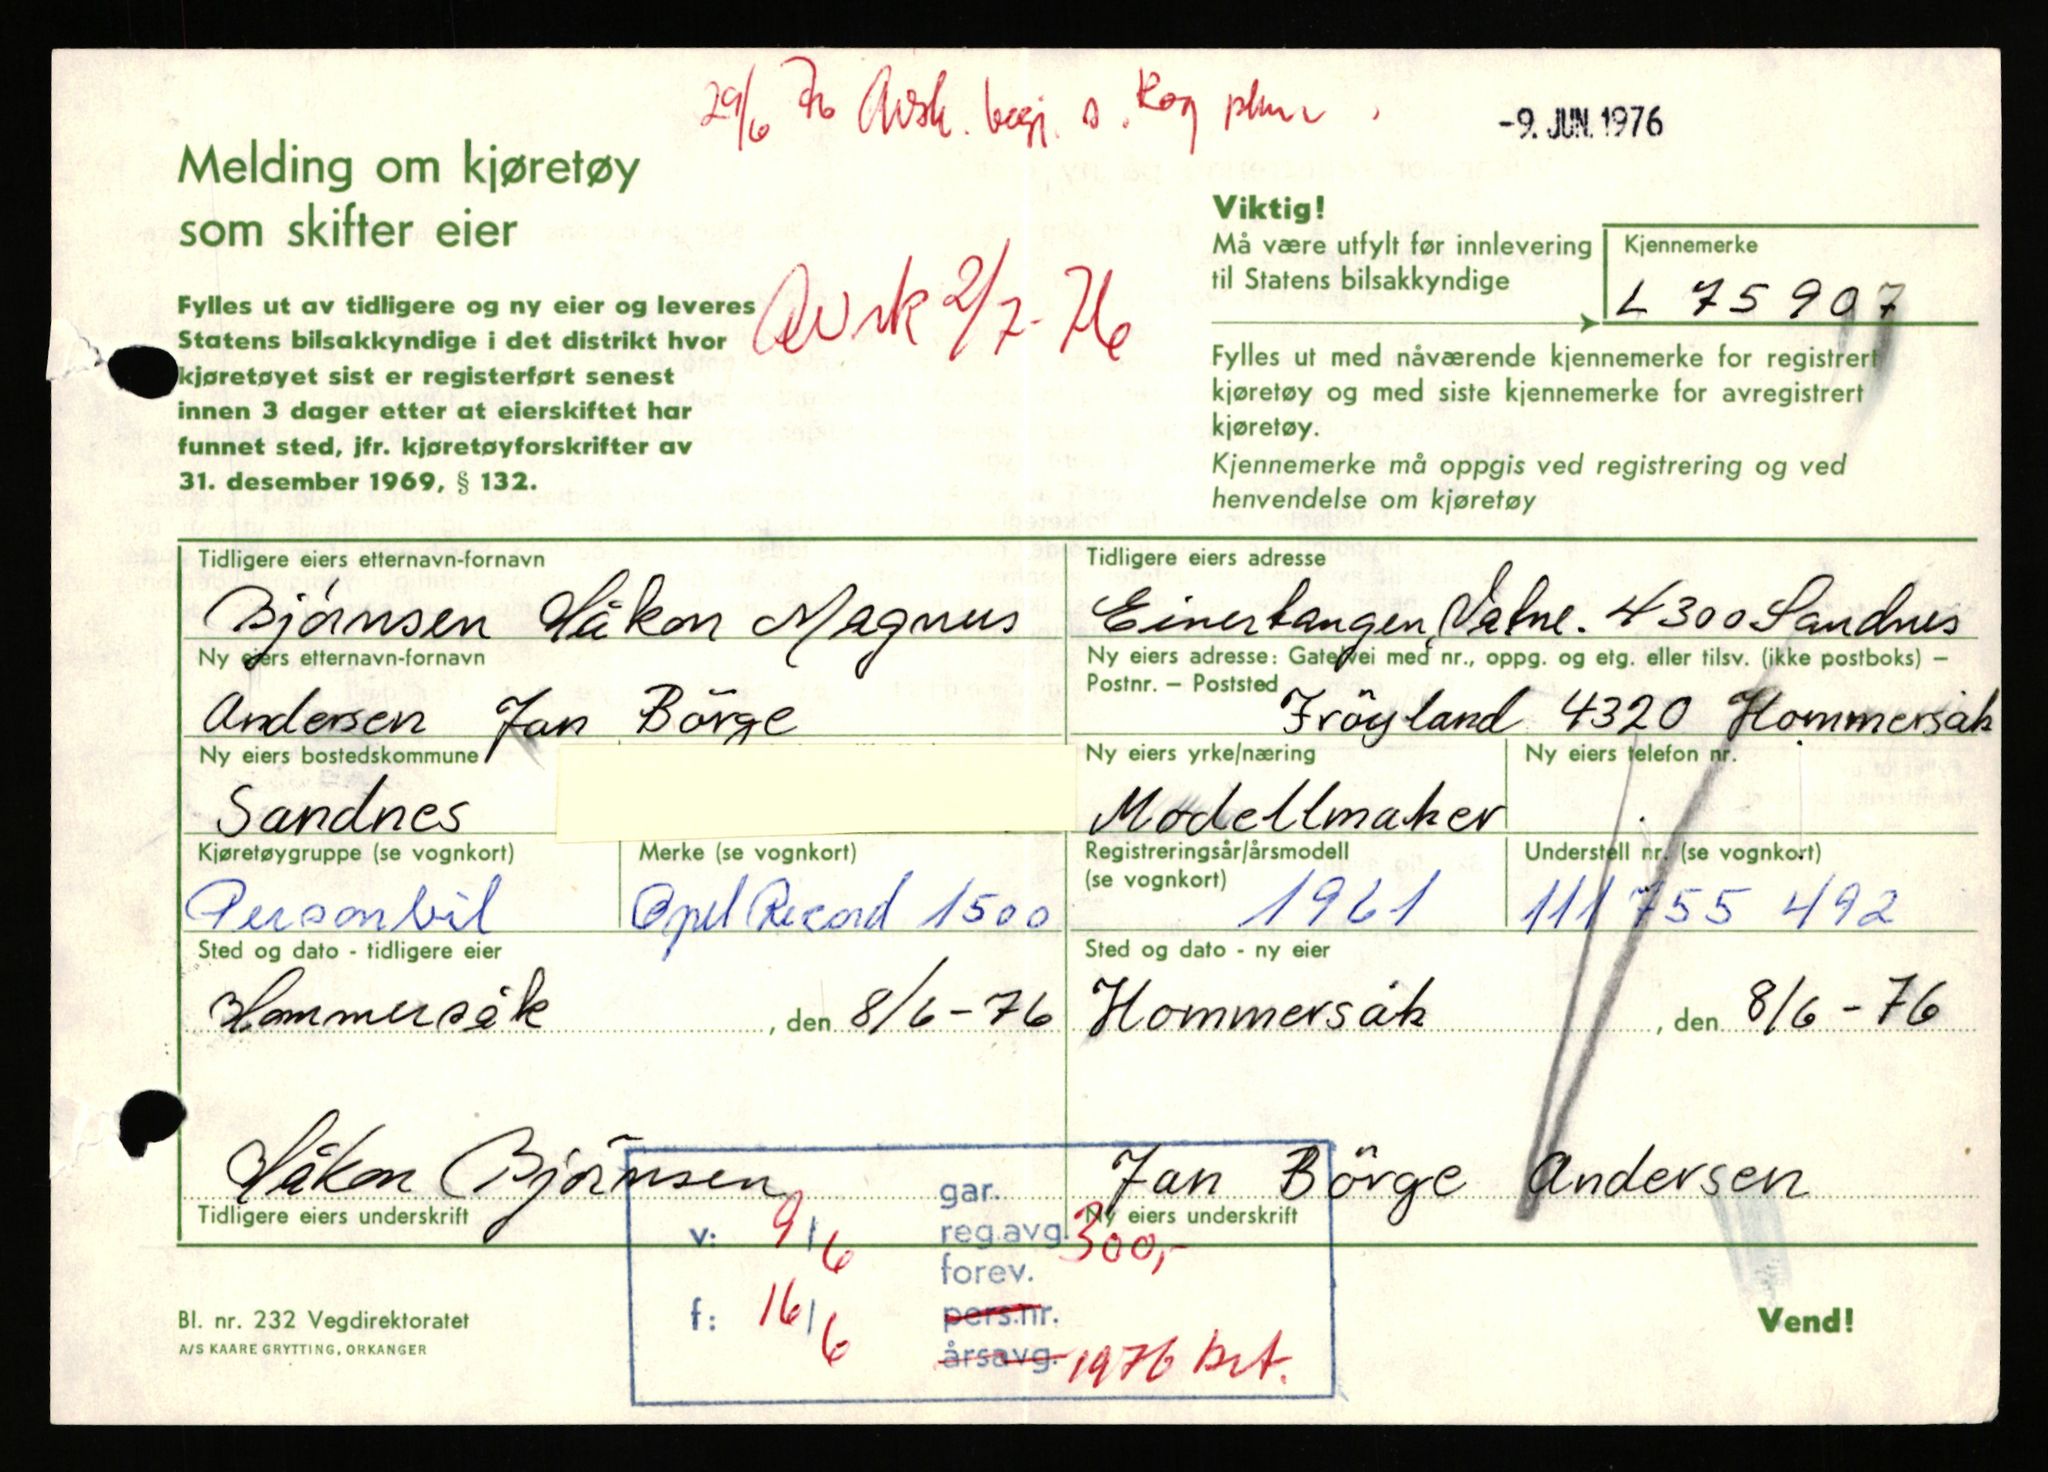 29/6 76 Avsk. begj. s. Rog
-9. JUN. 1976
Melding om kjøretøy
som skifter eier
Viktig!
Må være utfylt før innlevering
til Statens bilsakkyndige
Kjennemerke
L 75907
Fylles ut av tidligere og ny eier og leveres
Statens bilsakkyndige i det distrikt hvor
kjøretøyet sist er registerført senest
innen 3 dager etter at eierskiftet har
funnet sted, jfr. kjøretøyforskrifter av
31. desember 1969, § 132.
Avsk 2/7-76
Fylles ut med nåværende kjennemerke for registrert
kjøretøy og med siste kjennemerke for avregistrert
kjøretøy.
Kjennemerke må oppgis ved registrering og ved
henvendelse om kjøretøy
Tidligere eiers etternavn-fornavn
Björnsen Håkon Magnus
Tidligere eiers adresse
Einertangen, Vatne. 4300 Sandnes
Ny eiers etternavn-fornavn
Andersen Jan Börge
Ny eiers adresse: Gate/vei med nr., oppg. og etg. eller tilsv. (ikke postboks) –
Postnr. – Poststed
Fröyland 4320 Hommersåk
Ny eiers bostedskommune
Sandnes
Ny eiers yrke/næring
Modellmaker
Ny eiers telefon nr.
Kjøretøygruppe (se vognkort)
Personbil
Merke (se vognkort)
Opel Record 1500
Registreringsår/årsmodell
(se vognkort)
1961
Understell nr. (se vognkort)
111755 492
Sted og dato - tidligere eier
Hommersåk, den 8/6-76
Sted og dato - ny eier
Hommersåk, den 8/6-76
Håkon Björnsen
Tidligere eiers underskrift
Jan Börge Andersen
Ny eiers underskrift
v: 9/6
f: 16/6
gar.
reg.avg. 300,-
forev.
pers.nr.
årsavg. 1976 bet.
Bl. nr. 232 Vegdirektoratet
A/S KAARE GRYTTING, ORKANGER
Vend!